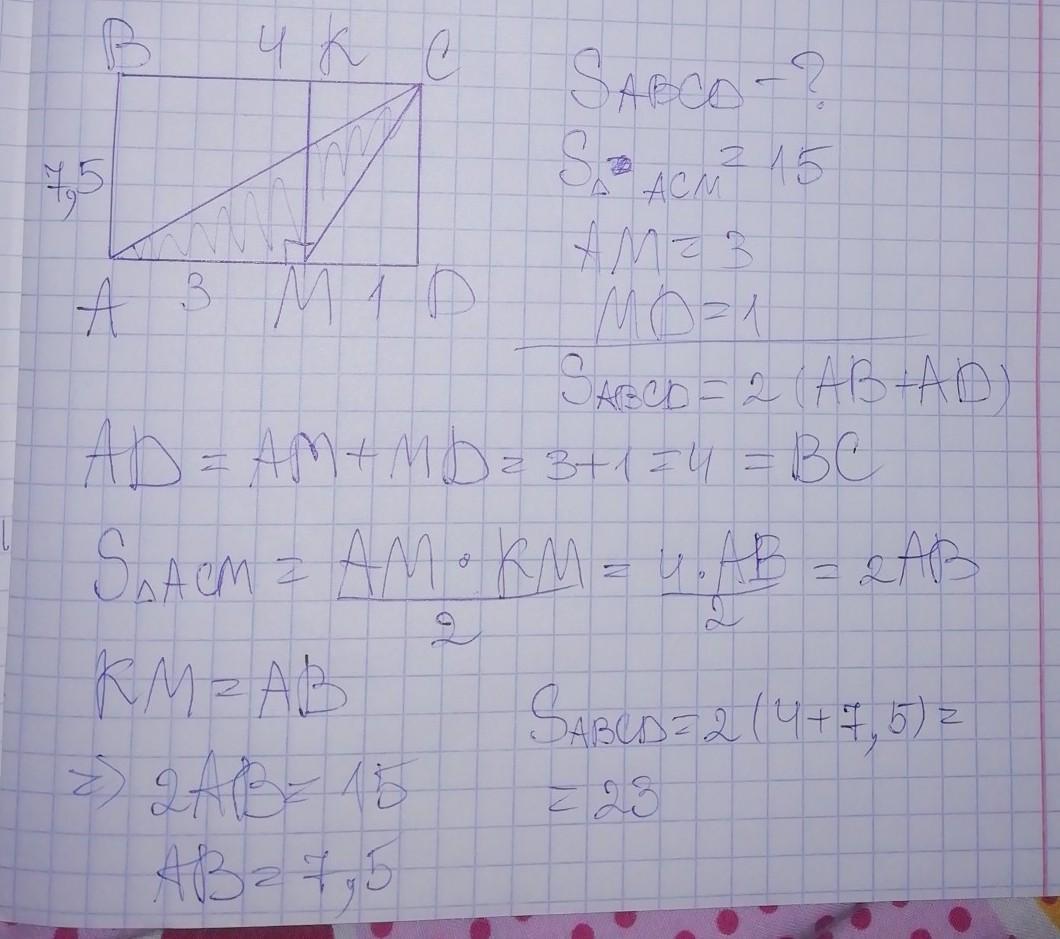 B 4 K C
7,5
A 3 M 1 D
S ABCD - ?
S△ ACM = 15
AM = 3
MD = 1
S ABCD = 2 (AB + AD)
AD = AM + MD = 3 + 1 = 4 = BC
S△ACM = AM · KM / 2 = 4 · AB / 2 = 2AB
KM = AB
=> 2AB = 15
AB = 7,5
S ABCD = 2 (4 + 7,5) =
= 23